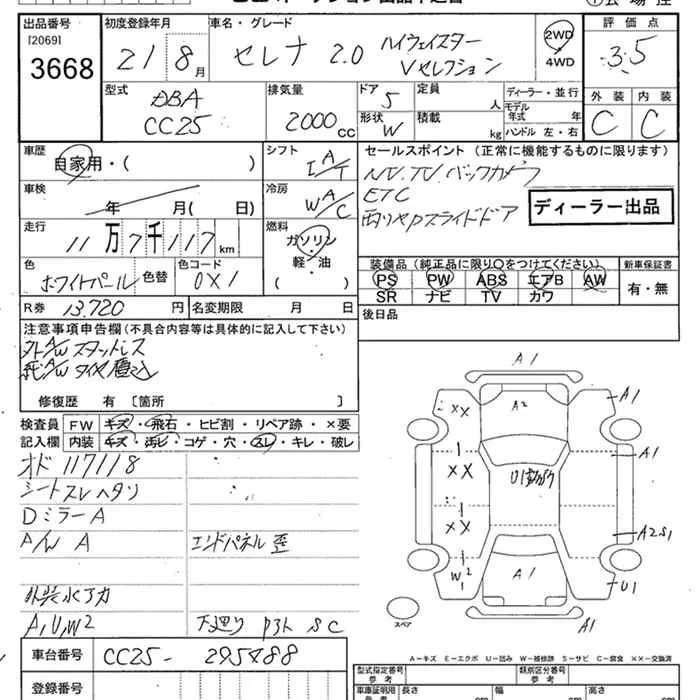 出品番号
[2069]
3668
初度登録年月
21 8月
車名・グレード
セレナ 2.0 ハイウェイスター
Vセレクション
2WD
・
4WD
評価点
3.5
外装 内装
C C
型式
DBA
CC25
排気量
2000cc
ドア
5
形状
W
定員 人
積載 kg
ディーラー・並行
モデル年式 年
ハンドル 左・右
車歴
自家用・( )
シフト
IA/T
車検
年 月( 日)
冷房
WA/C
走行
11万7千117km
燃料
ガソリン
・
軽・油
( )
色
ホワイトパール
色替
色コード
0X1
R券 13,720円
名変期限 月 日
セールスポイント(正常に機能するものに限ります)
NV.TV.バックカメラ
ETC
スライドドア
ディーラー出品
装備品(純正品に限り○をつけてください)
PS PW ABS エアB AW
SR ナビ TV カワ
新車保証書
有・無
後日品
注意事項申告欄(不具合内容等は具体的に記入して下さい)
外A/W スタッドレス
純A/W タイヤ積込
修復歴 有〔箇所 〕
検査員記入欄
FW キズ・飛石・ヒビ割・リペア跡・×要
内装 キズ・汚ビ・コゲ・穴・スレ・キレ・破レ
オド 117118
シートスレ ヘタリ
Dミラー A
A/W A エンドパネル 歪
外装水アカ
A,U,W2 下廻り P3ト SC
車台番号 CC25-295488
登録番号
A1
A2
XX
A1
A1
XX
U1
XX
A2S1
W2
A1
U1
A1
スペア
A-キズ E-エクボ U-凹み W-補修跡 S-サビ C-腐食 ××-交換済
型式指定番号
参考
類別区分番号
参考
車庫証明用
参考
長さ cm
幅 cm
高さ cm